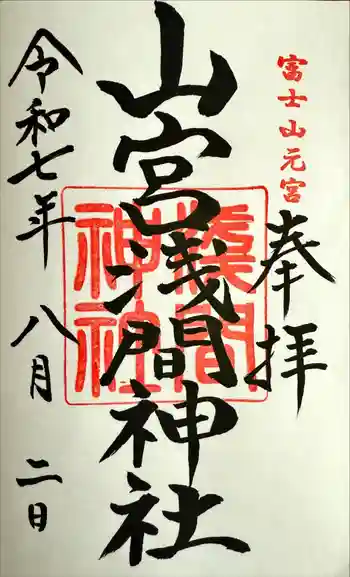 富士山元宮
奉拝
山宮浅間神社
淺間神社
令和七年 八月 二日